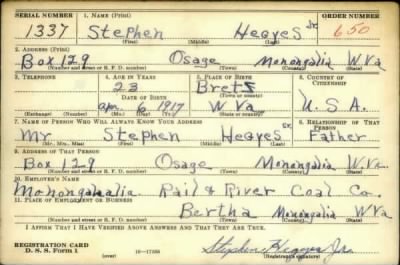 SERIAL NUMBER 1. NAME (Print) ORDER NUMBER
1337 Stephen Hegyes Jr. 650
(First) (Middle) (Last)
2. ADDRESS (Print)
Box 129 Osage Monongalia W.Va
(Number and street or R. F. D. number) (Town) (County) (State)
3. TELEPHONE 4. AGE IN YEARS 5. PLACE OF BIRTH 6. COUNTRY OF CITIZENSHIP
23 Bretz
DATE OF BIRTH (Town or county)
Apr. 6 1917 W Va U.S.A.
(Exchange) (Number) (Mo.) (Day) (Yr.) (State or country)
7. NAME OF PERSON WHO WILL ALWAYS KNOW YOUR ADDRESS 8. RELATIONSHIP OF THAT PERSON
Mr Stephen Hegyes Sr. Father
(Mr., Mrs., Miss) (First) (Middle) (Last)
9. ADDRESS OF THAT PERSON
Box 129 Osage Monongalia W.Va
(Number and street or R. F. D. number) (Town) (County) (State)
10. EMPLOYER'S NAME
Monongahalia Rail & River Coal Co.
11. PLACE OF EMPLOYMENT OR BUSINESS
Bertha Monongalia W Va
(Number and street or R. F. D. number) (Town) (County) (State)
I AFFIRM THAT I HAVE VERIFIED ABOVE ANSWERS AND THAT THEY ARE TRUE.
REGISTRATION CARD
D. S. S. Form 1 (over) 16—17105 Stephen Hegyes Jr.
(Registrant's signature)